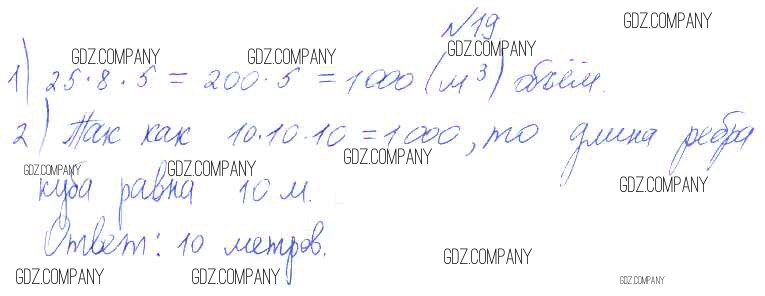 №19
1) 25·8·5 = 200·5 = 1000 (м³) объём.
2) Так как 10·10·10 = 1000, то длина ребра
куба равна 10 м.
Ответ: 10 метров.
GDZ.COMPANY
GDZ.COMPANY
GDZ.COMPANY
GDZ.COMPANY
GDZ.COMPANY
GDZ.COMPANY
GDZ.COMPANY
GDZ.COMPANY
GDZ.COMPANY
GDZ.COMPANY
GDZ.COMPANY
GDZ.COMPANY